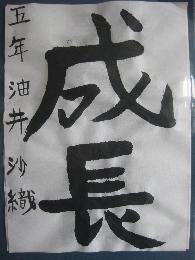 成長
五年 油井沙織